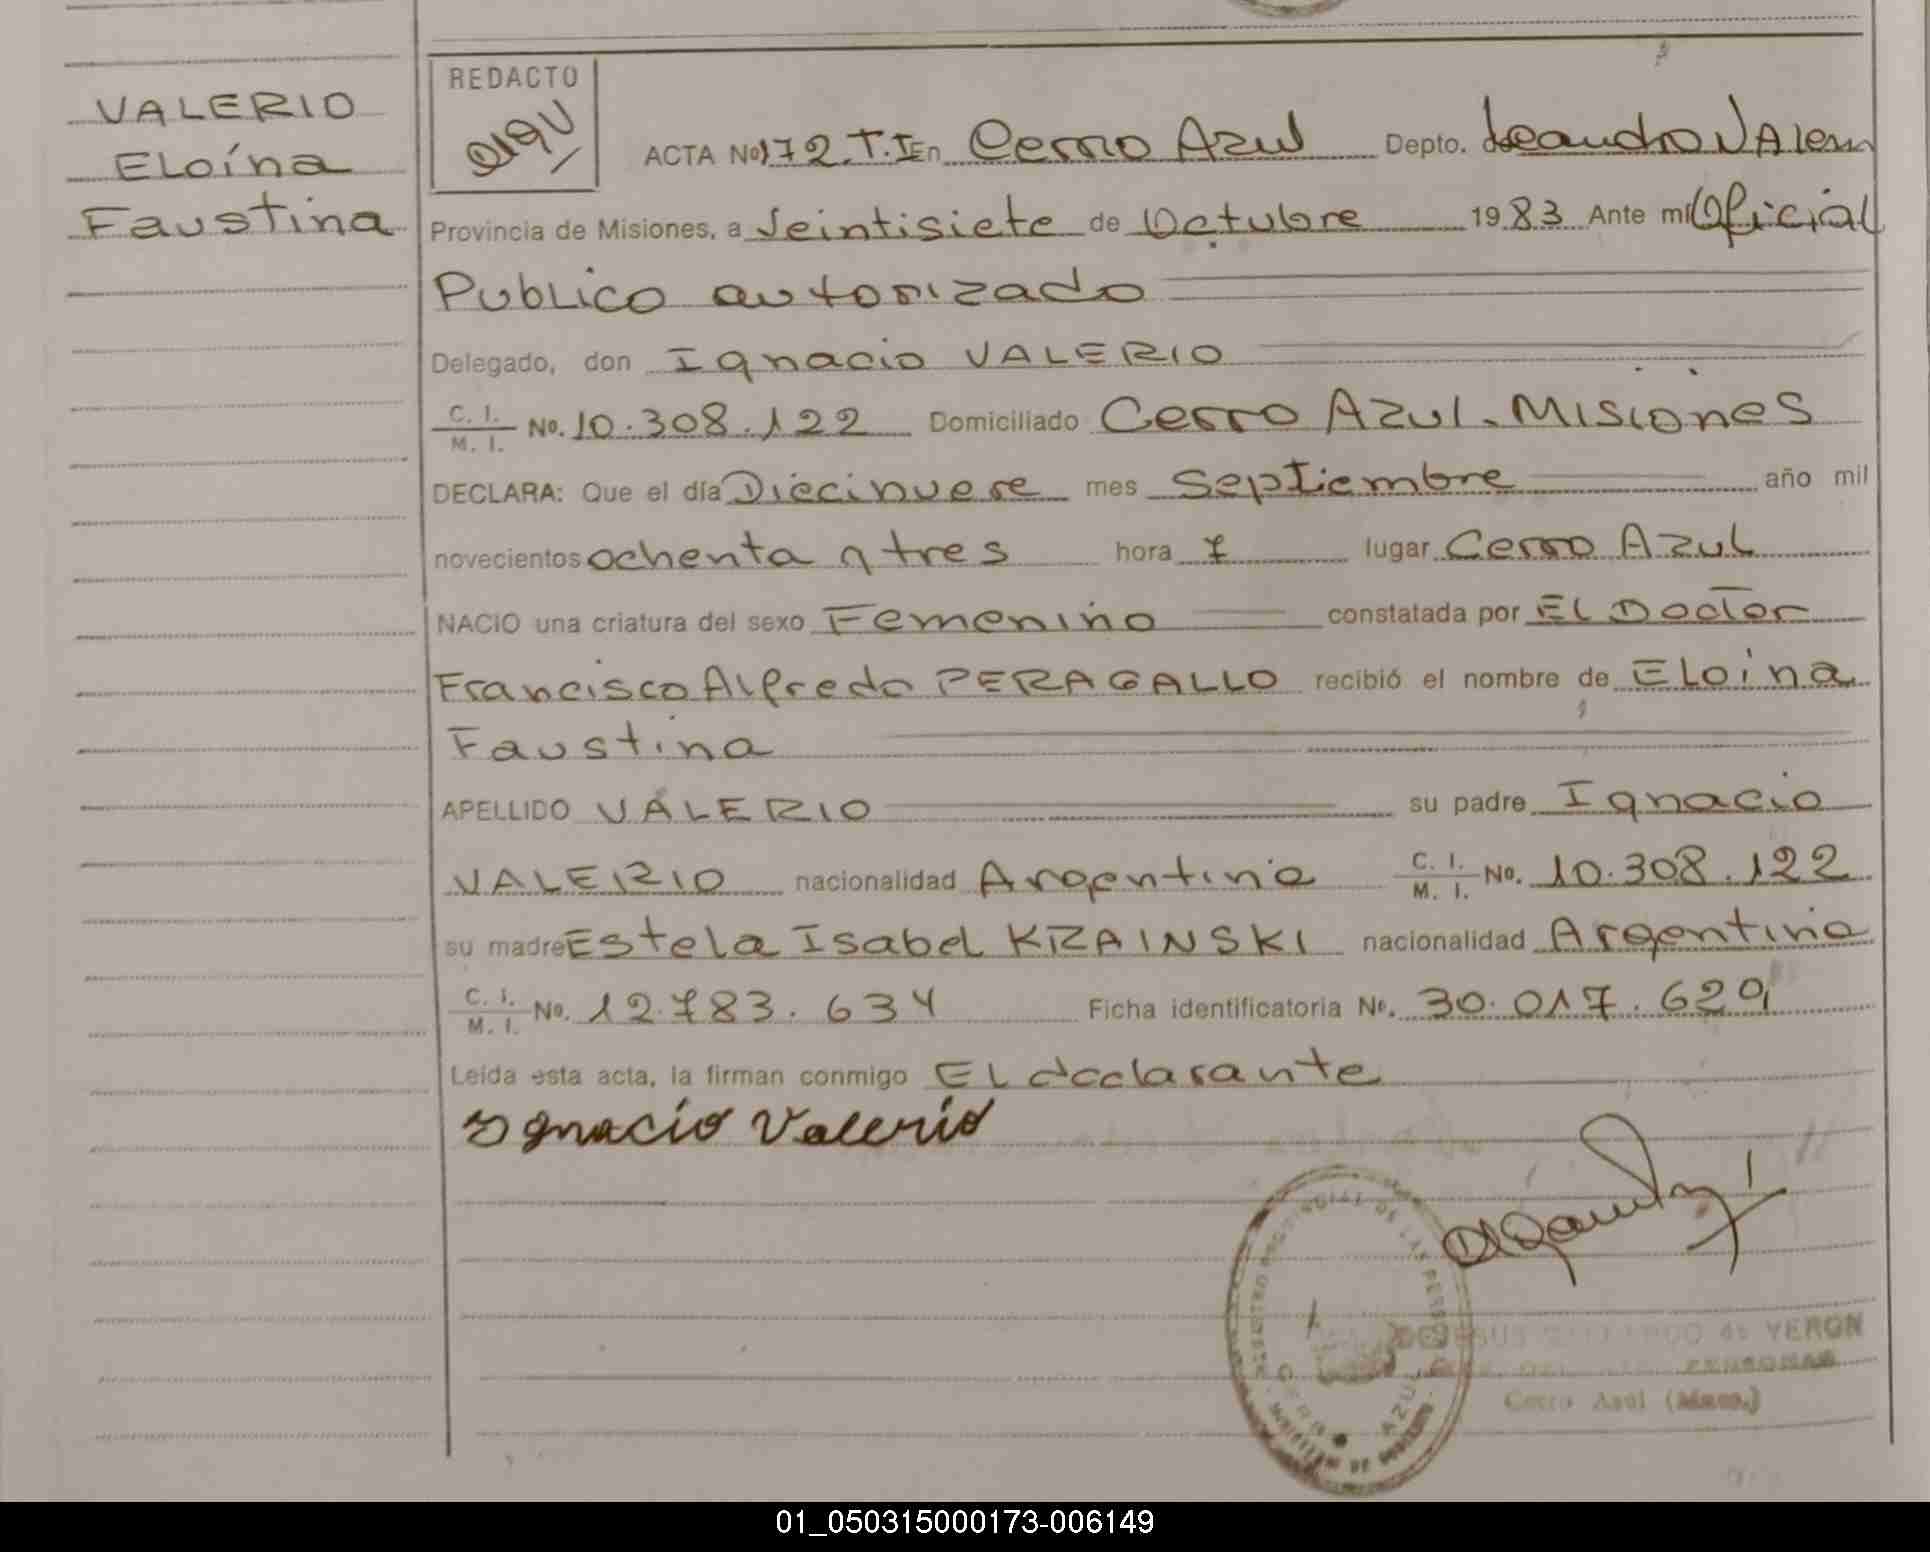 VALERIO
ELOína
Faustina
REDACTO
ACTA No 172.T.I En Cerro Azul Depto. Leandro N Alem
Provincia de Misiones, a Veintisiete de Octubre 1983 Ante mi Oficial
Publico autorizado
Delegado, don Ignacio VALERIO
C. I. / M. I. No. 10.308.122 Domiciliado Cerro Azul - Misiones
DECLARA: Que el día Diecinueve mes Septiembre año mil
novecientos ochenta y tres hora 7 lugar Cerro Azul
NACIO una criatura del sexo Femenino constatada por El Doctor
Francisco Alfredo PERAGALLO recibió el nombre de Eloína
Faustina
APELLIDO VALERIO su padre Ignacio
VALERIO nacionalidad Argentina C. I. / M. I. No. 10.308.122
su madre Estela Isabel KRAINSKI nacionalidad Argentina
C. I. / M. I. No. 12.783.634 Ficha identificatoria No. 30.017.629
Leída esta acta, la firman conmigo El declarante
Ignacio Valerio
REGISTRO PROVINCIAL DE LAS PERSONAS
CERRO AZUL
MINISTERIO DE GOBIERNO
de VERON
PERSONAS
Cerro Azul (Mnes.)
01_050315000173-006149